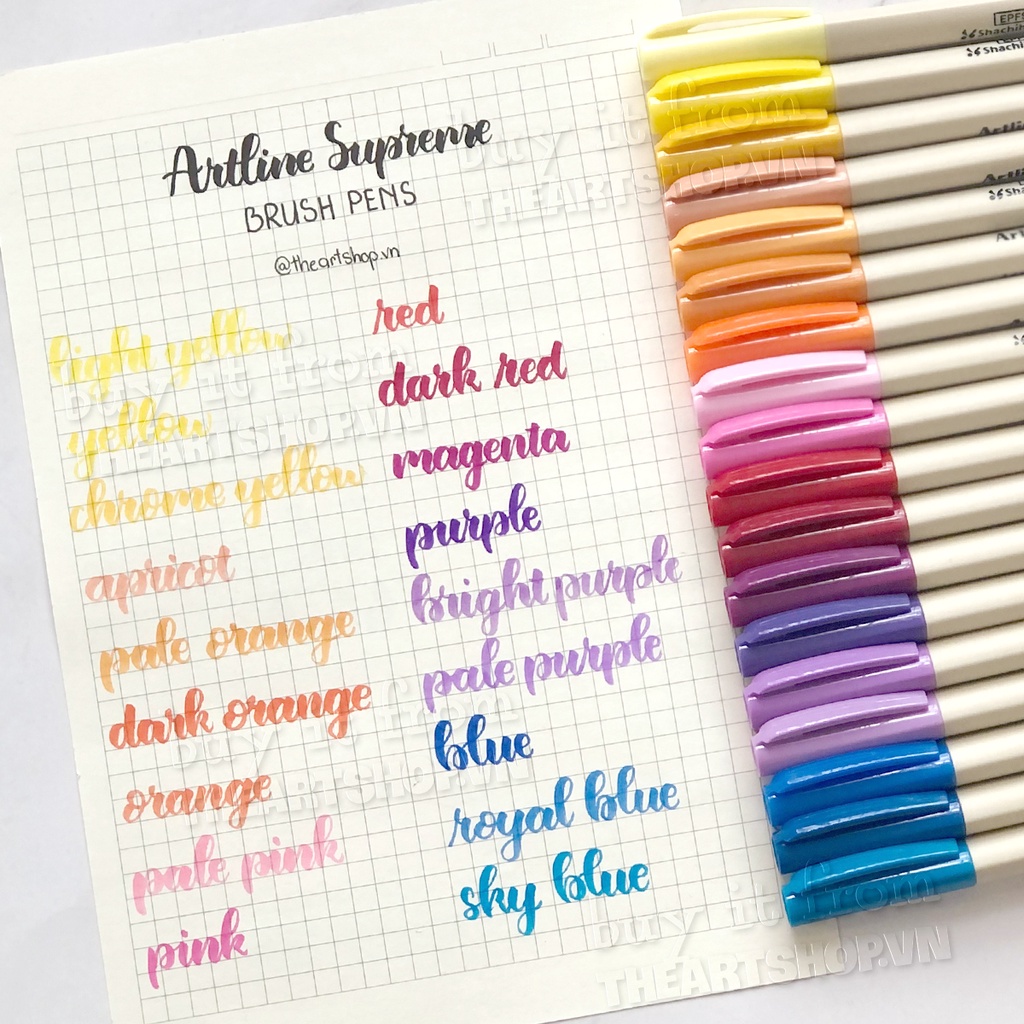 Artline Supreme
BRUSH PENS
@theartshop.vn
light yellow
yellow
chrome yellow
apricot
pale orange
dark orange
orange
pale pink
pink
red
dark red
magenta
purple
bright purple
pale purple
blue
royal blue
sky blue
buy it from
THEARTSHOP.VN
buy it from
THEARTSHOP.VN
buy it from
THEARTSHOP.VN
buy it from
THEARTSHOP.VN
EPFS
Shachih
Shachih
Artli
Artli
Shach
Art